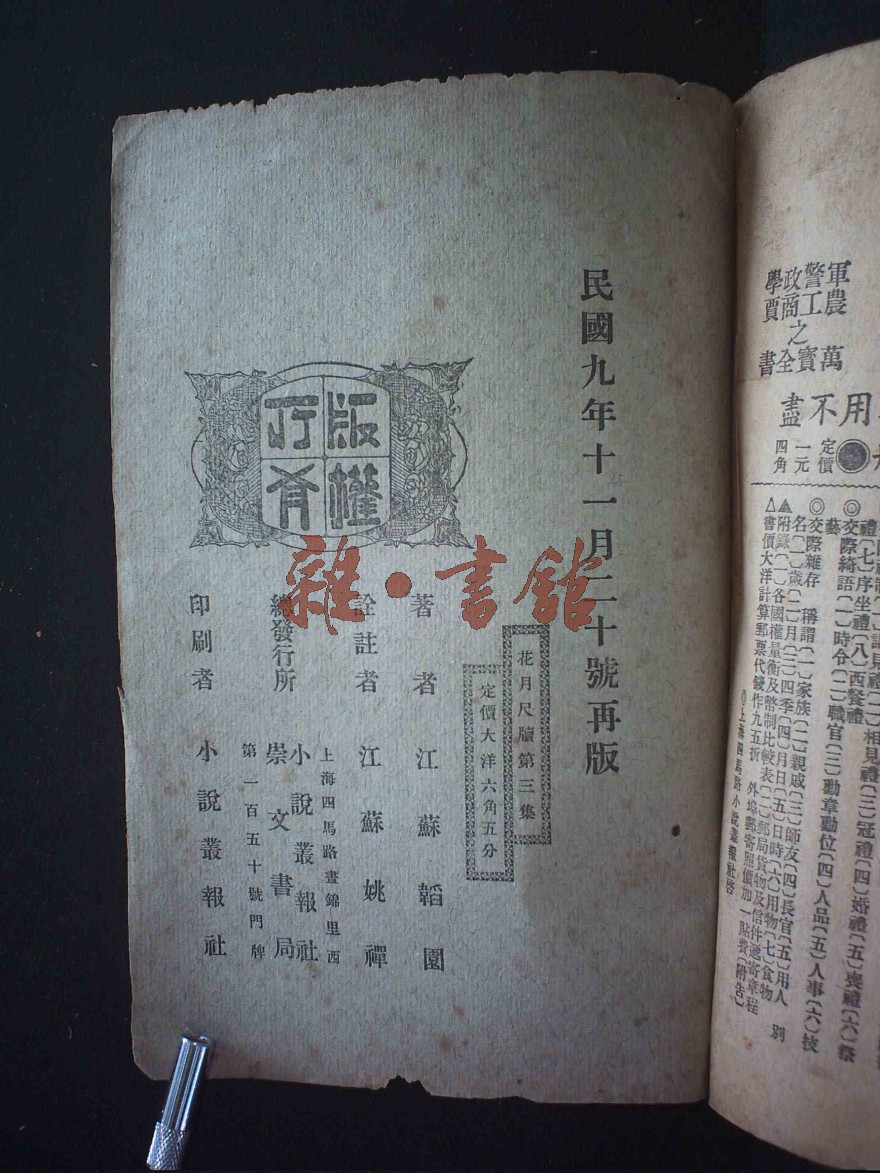 民國九年十一月二十號再版
花月尺牘第三集
定價大洋六角五分
版權所有
著者 江蘇韜園
詮註者 江蘇姚禪
總發行所
上海四馬路晝錦里西
小說叢報社
崇文書局
第一百五十號門牌
印刷者 小說叢報社
雜·書館
軍警政學
農工商賈
之
萬寶全書
用不盡
定價
一元
四角
禮(七)序坐禮(八)西餐禮
◎交際綺語(一)時令(二)職官(三)勳章勳位(四)人品(五)人事(六)技
藝
◎交際雜存 稱謂(一)家族(二)親戚(三)師友(四)長官(五)用人 別
名(一)歲(二)月(三)四季(四)月日(五)日時(六)用物(七)食物
▲附錄(一)各國權量衡及幣制比較表(二)郵局貨物及信件遞寄章程
△書價大洋計算郵票代幾作九五折 外埠郵寄照價加一貼費(附告)
◎上海四馬路小說叢報社啓